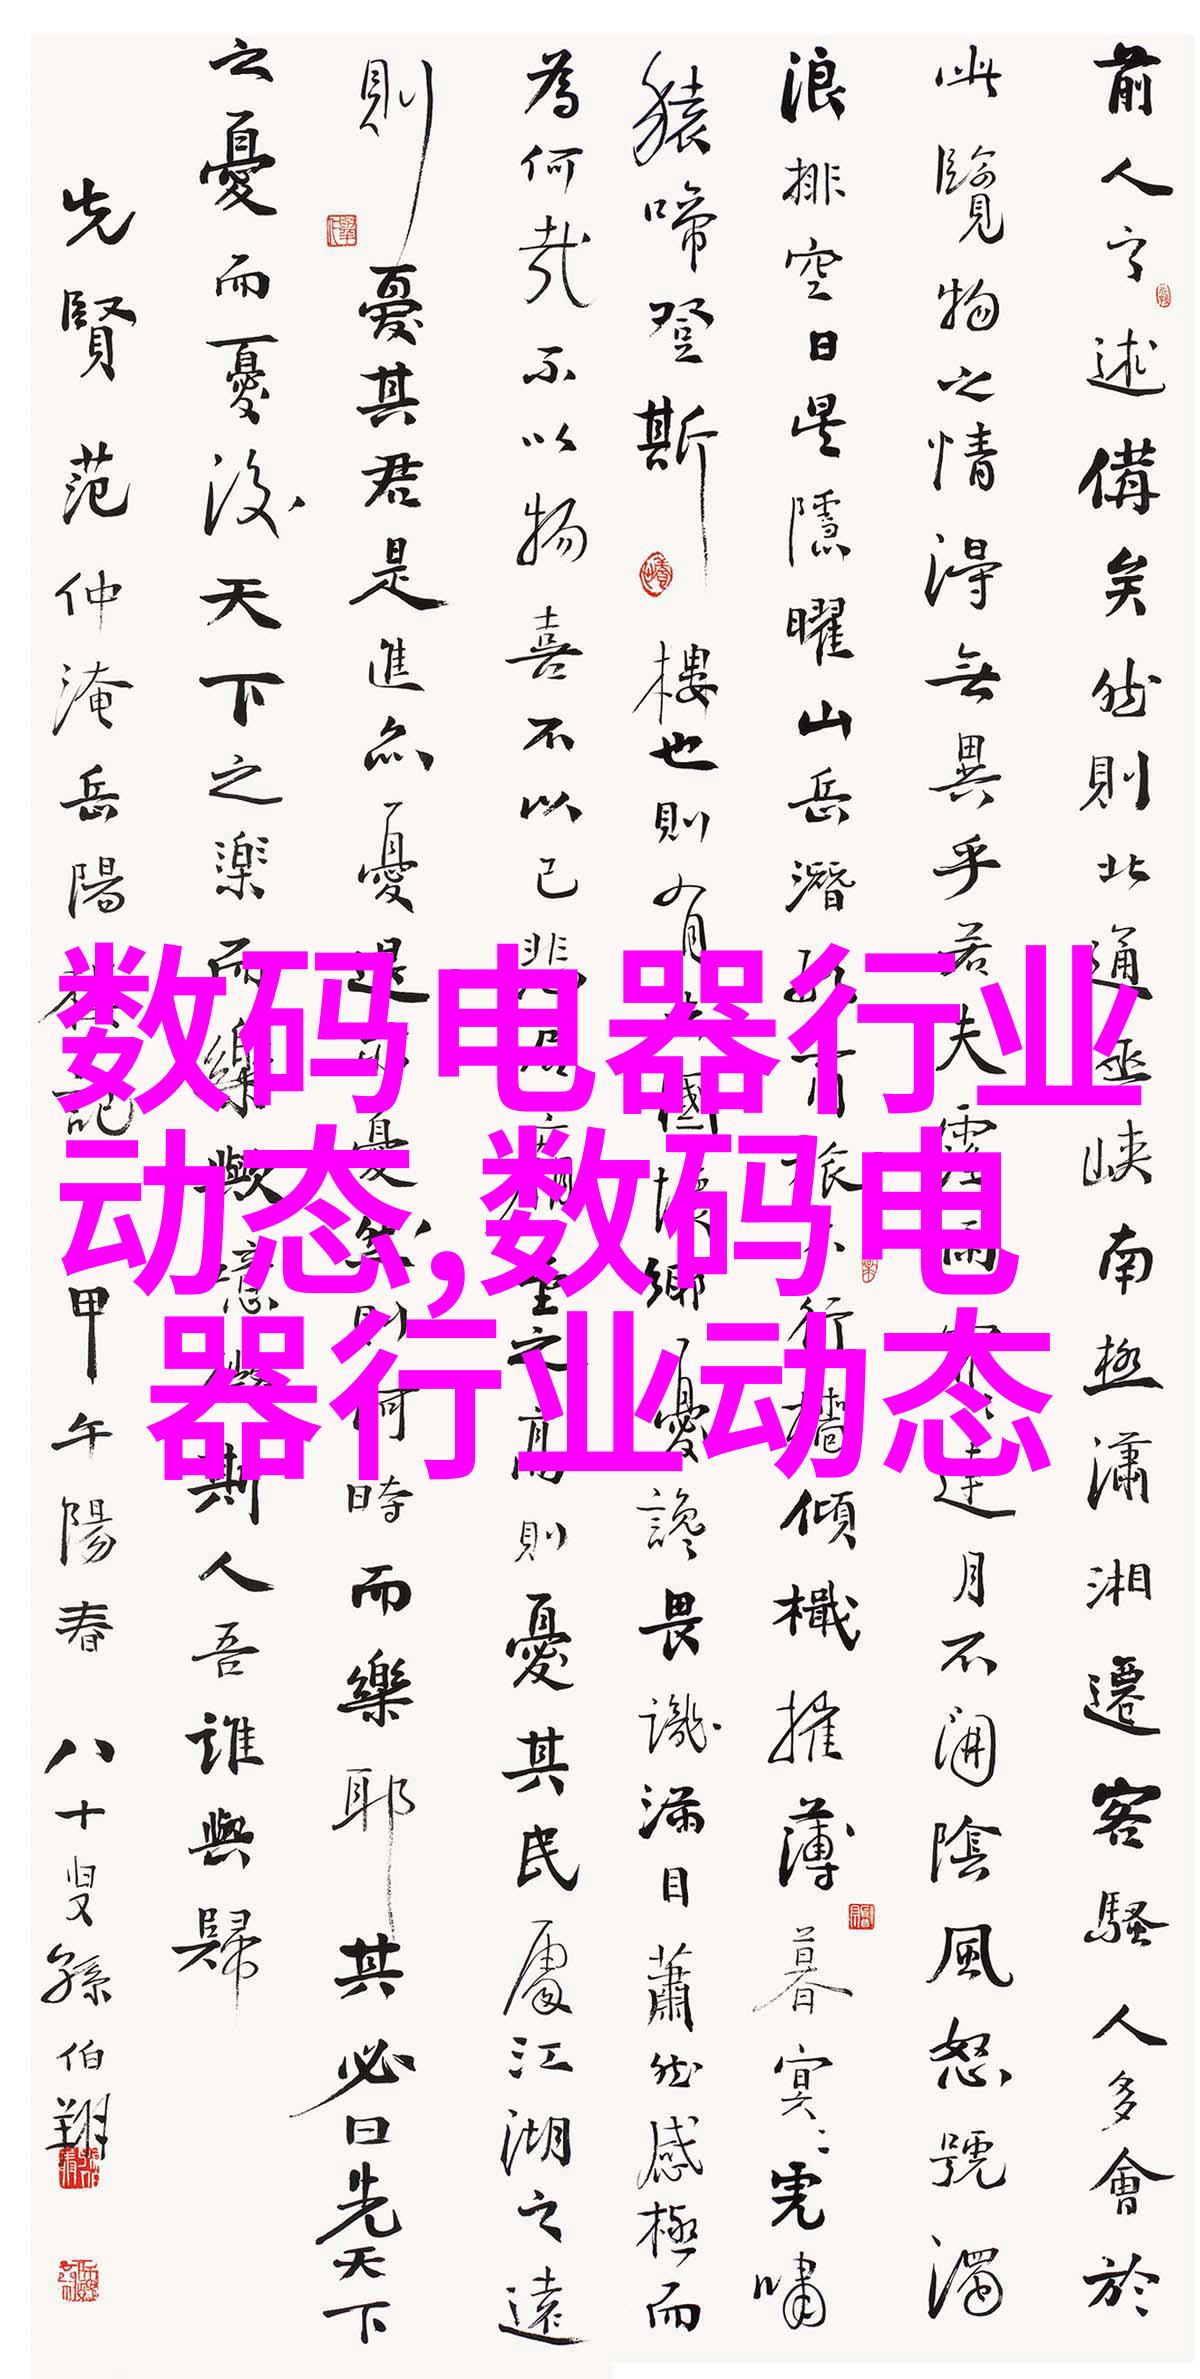 前人之述備矣然則北通巫峽南極瀟湘遷客騷人多會於
此覽物之情得無異乎若夫霪雨霏霏連月不開陰風怒號濁
浪排空日星隱曜山岳潛形商旅不行檣傾檝摧薄暮冥冥虎嘯
猿啼登斯樓也則有去國懷鄉憂讒畏譏滿目蕭然感極而
為何哉不以物喜不以己悲居廟堂之高則憂其民處江湖之遠
則憂其君是進亦憂退亦憂然則何時而樂耶其必曰先天下
之憂而憂後天下之樂而樂歟噫微斯人吾誰與歸
先賢范仲淹岳陽樓記 甲午陽春 八十叟孫伯翔
数码电器行业
动态,数码电
器行业动态